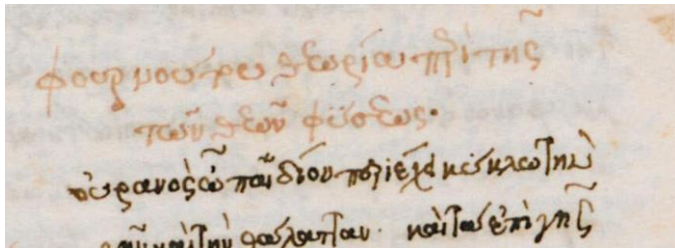 φουρνούτου θεωρία περὶ τῆς
τῶν θεῶν φύσεως·
οὐρανὸς ὦ παιδίον περιέχει κύκλω τὴν
γῆν καὶ τὴν θάλατταν· καὶ τὰ ἐπὶ γῆς